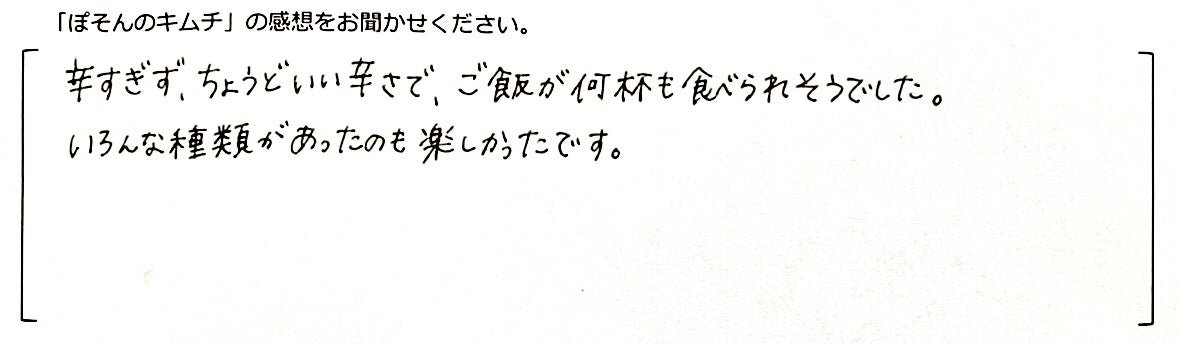 「ぽそんのキムチ」の感想をお聞かせください。
辛すぎず、ちょうどいい辛さで、ご飯が何杯も食べられそうでした。
いろんな種類があったのも楽しかったです。